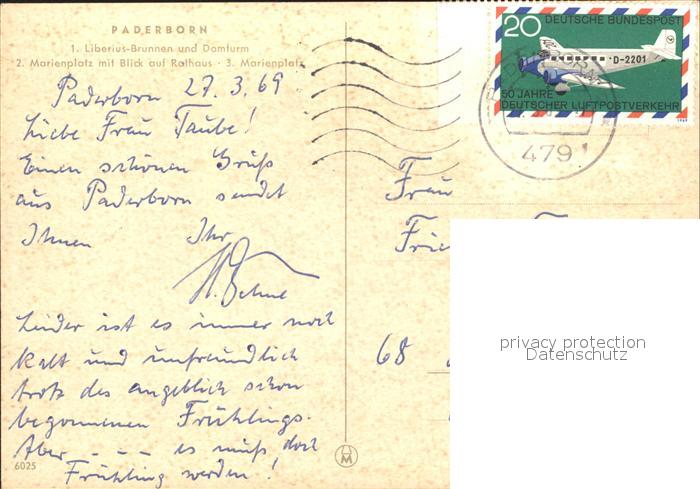 PADERBORN
1. Liberius-Brunnen und Domturm
2. Marienplatz mit Blick auf Rathaus · 3. Marienplatz
Paderborn 27.3.69
Liebe Frau Taube!
Einen schönen Gruß
aus Paderborn sendet
Ihnen Ihr
Leider ist es immer noch
kalt und unfreundlich
trotz des angeblich schon
begonnenen Frühlings.
Aber - - - es muß doch
Frühling werden!
6025
20 DEUTSCHE BUNDESPOST
D-2201
50 JAHRE
DEUTSCHER LUFTPOSTVERKEHR
1969
479
Frau
68
privacy protection
Datenschutz